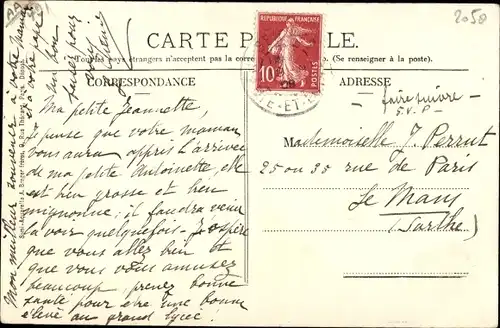 2058
CARTE POSTALE.
Tous les pays étrangers n'acceptent pas la correspondance au recto. (Se renseigner à la poste).
RÉPUBLIQUE FRANÇAISE
10
POSTES
CORRESPONDANCE
ADRESSE
Ma petite Jeannette,
je pense que votre maman
vous aura appris l'arrivée
de ma petite Antoinette, elle
est bien grosse et bien
mignonne; il faudra venir
la voir quelquefois. J'espère
que vous allez bien et
que vous vous amusez
beaucoup, prenez bonne
santé pour être une bonne
élève au grand lycée!
Mon meilleur souvenir à votre maman
et à votre papa
un bon
baiser pour
vous
faire suivre
S.V.P.
Mademoiselle J. Perrut
25 ou 35 rue de Paris
Le Mans
(Sarthe)